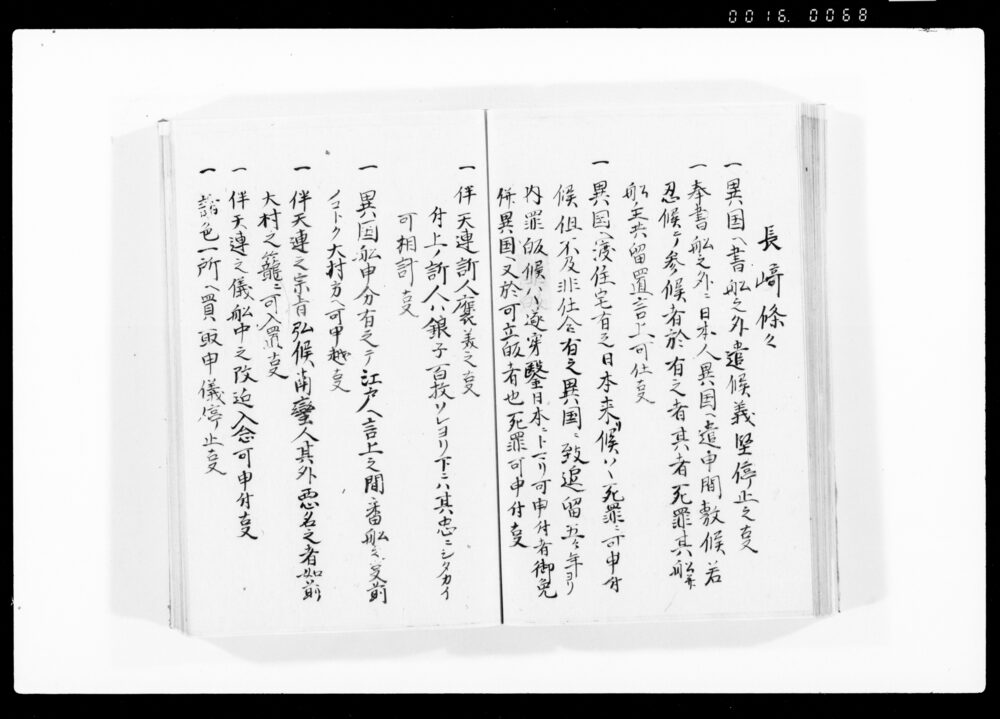 0016. 0068
長崎條々
一 異国ヘ書船之外遣候義堅停止之事
一 奉書船之外ニ日本人異国ヘ遣申間敷候若
忍候テ参候者於有之者其者死罪其船
船主共留置言上可仕事
一 異国ヘ渡住宅有之日本来候ハヽ死罪ニ可申付
候但不及非仕合有之異国ニ致逗留五ヶ年ヨリ
内罪皈候ハヽ遂穿鑿日本ニトマリ可申付者御免
併異国ヘ又於可立皈者也死罪可申付事
一 伴天連訴人褒美之事
付上ノ訴人ハ銀子百枚ソレヨリ下ニハ其忠ニシタカイ
可相計事
一 異国船申分有之テ江戸ヘ言上之間番船之事前
ノコトク大村方ヘ可申越事
一 伴天連之宗旨弘候南蛮人其外悪名之者如前
大村之籠ニ可入置事
一 伴天連之儀船中之改迄入念可申付事
一 諸色一所ヘ買取申儀停止事